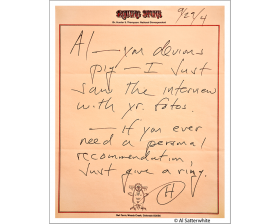 9/29/4
Dr. Hunter S. Thompson, National Correspondent
Al — you devious
pig — I just
saw the interview
with yr. fotos.
— if you ever
need a personal
recommendation,
just give a ring.
H
© Al Satterwhite